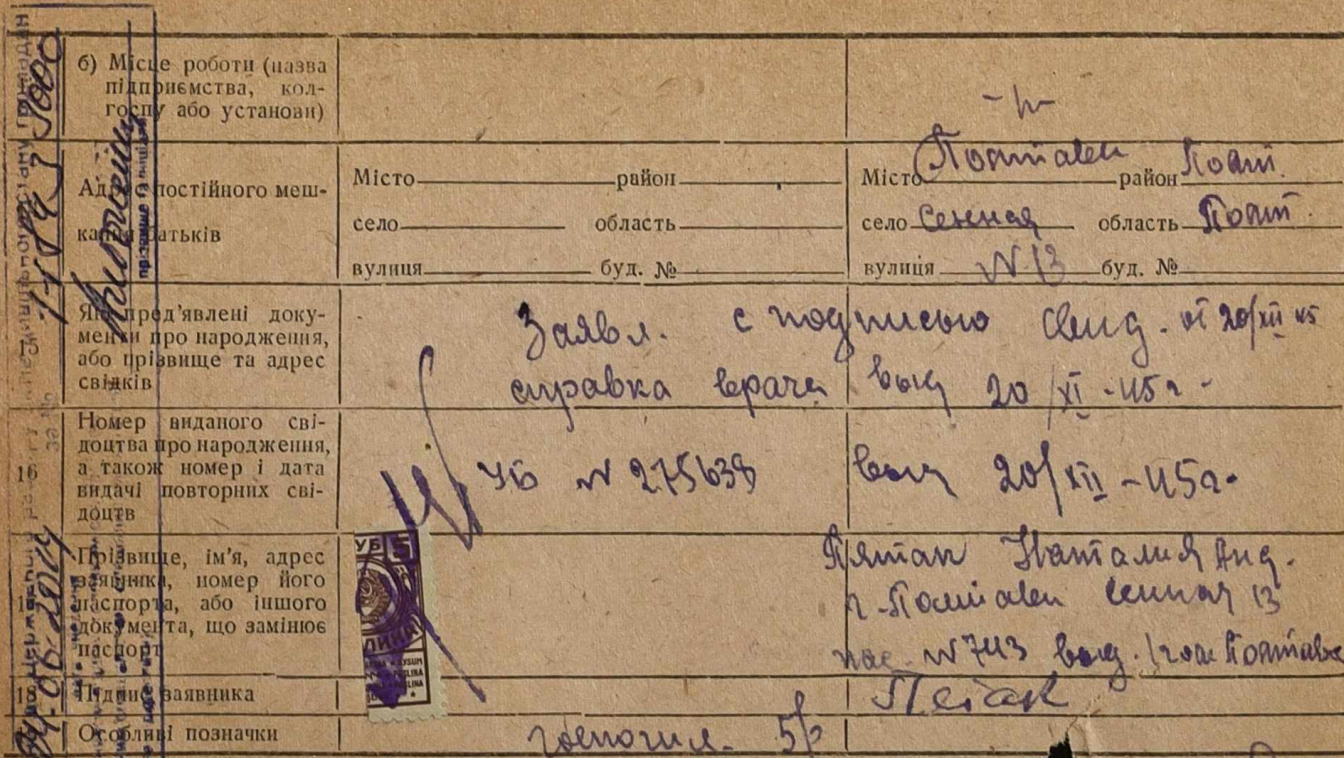 б) Місце роботи (назва
підприємства, кол-
госпу або установи)
Адрес постійного меш-
кання батьків
Місто район
село область
вулиця буд. №
Місто Полтава район Полт.
село Сенная область Полт.
вулиця N 13 буд. №
Які пред'явлені доку-
менти про народження,
або прізвище та адрес
свідків
Заявл. с подписью свид. от 20/XII 45
справка врача выд 20/XI-45г-
16
Номер виданого сві-
доцтва про народження,
а також номер і дата
видачі повторних сві-
доцтв
УБ N 275638 выд 20/XII-45г.
Прізвище, ім'я, адрес
заявника, номер його
паспорта, або іншого
документа, що замінює
паспорт
УБ 5
Пятак Наталия Анд.
г. Полтава Сенная 13
пас. N 743 выд. Полтава
18
Підпис заявника
Петак
Особливі позначки
госпошл. 5р